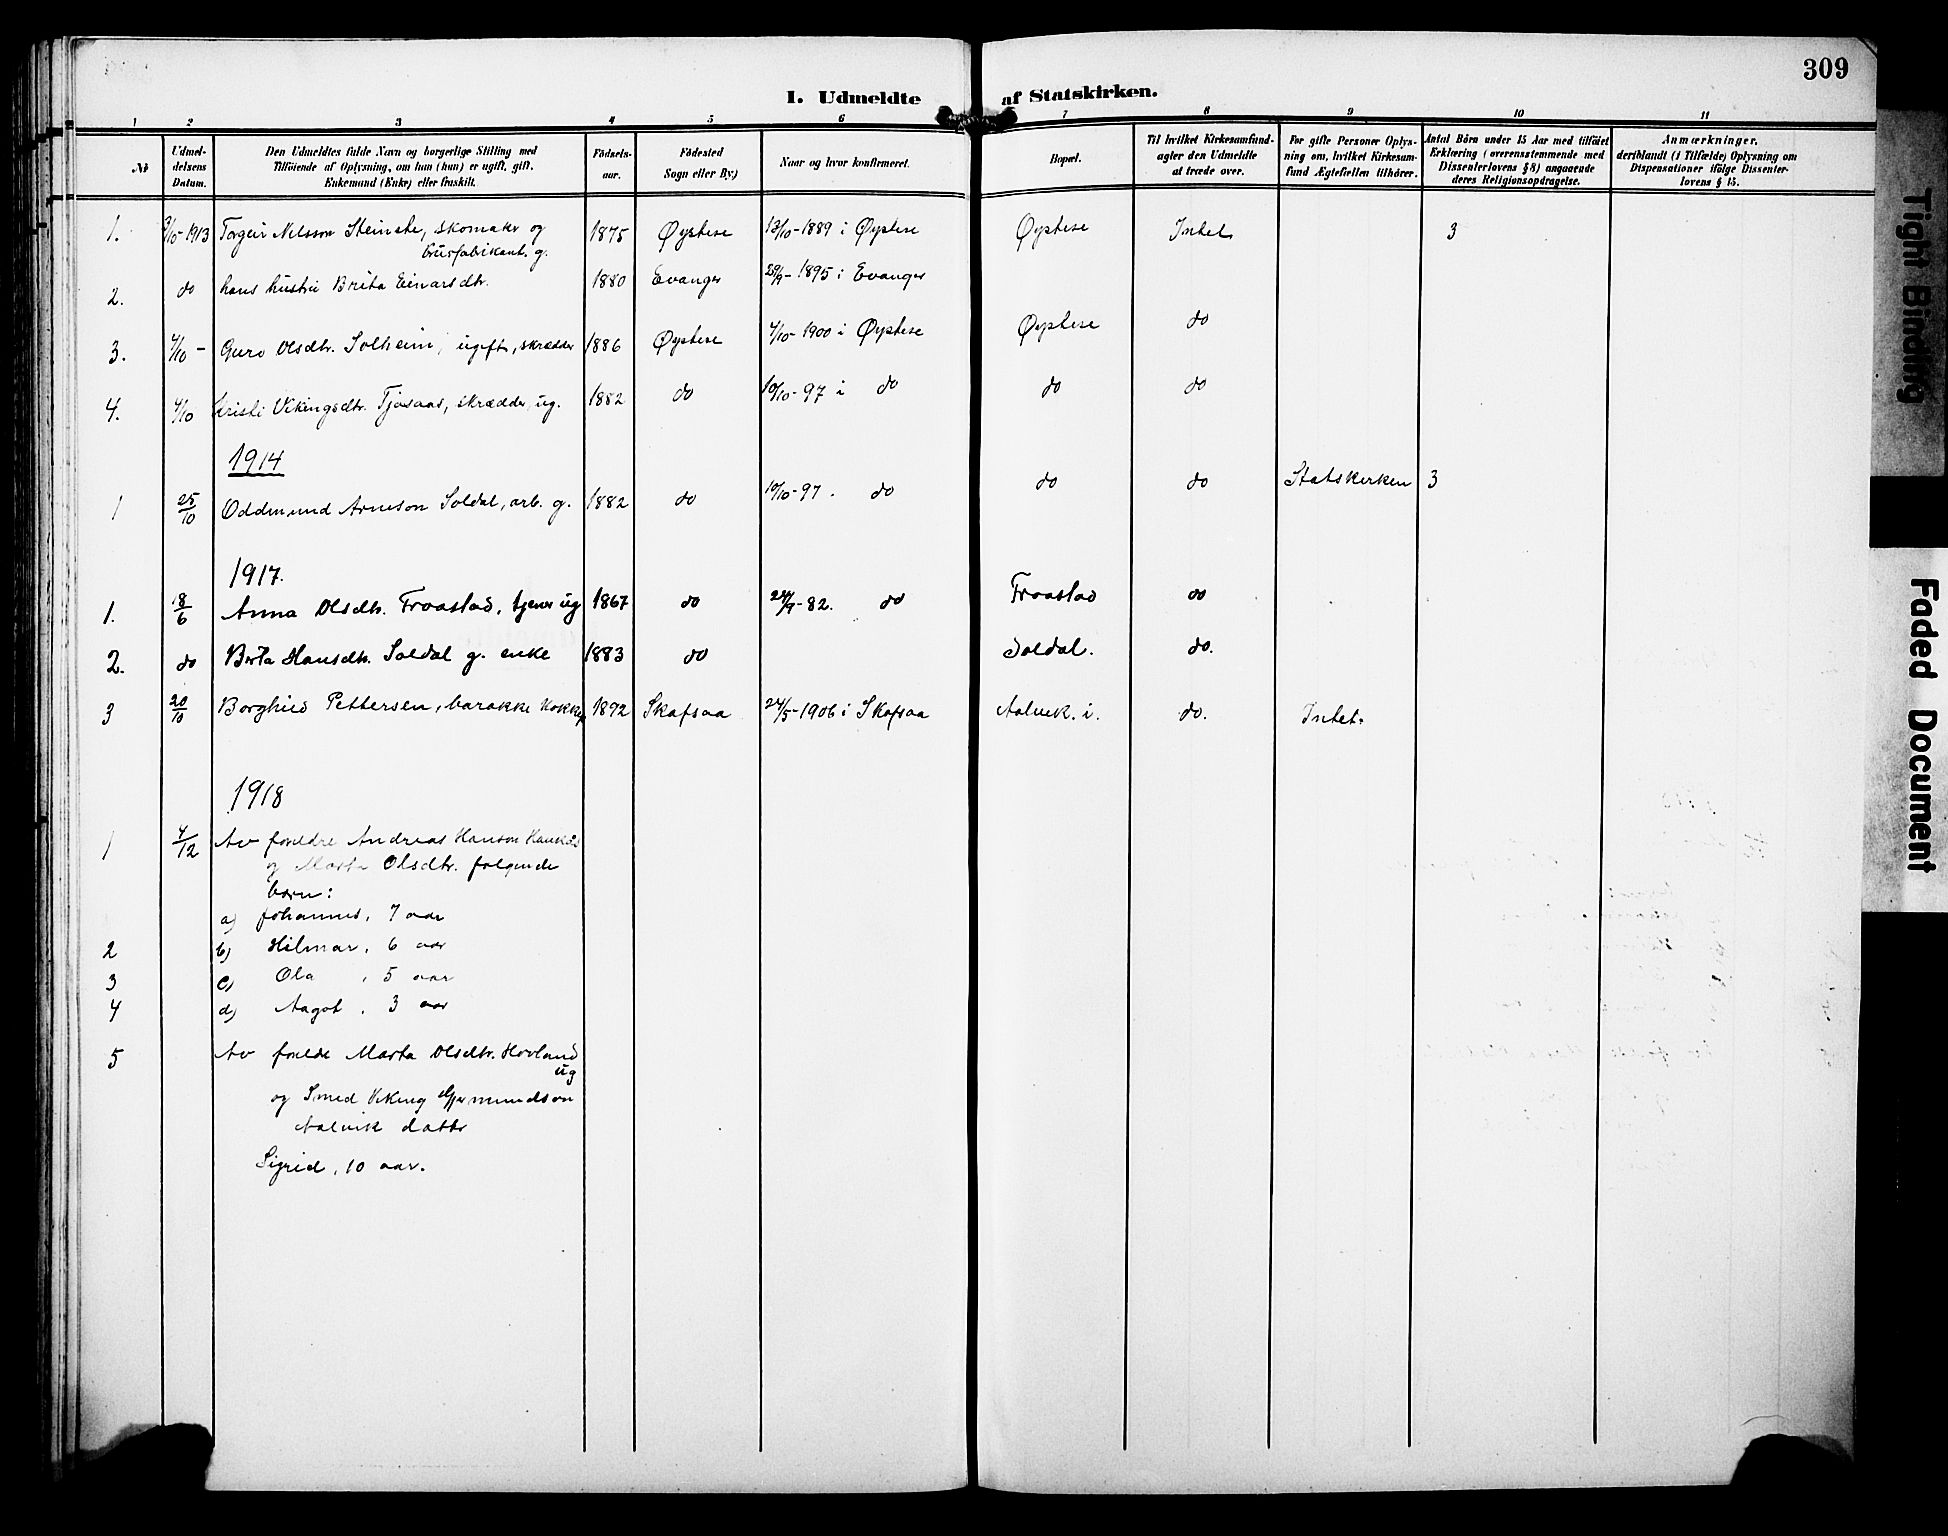 309
I. Udmeldte af Statskirken.
1 2 3 4 5 6 7 8 9 10 11
No
Udmel-
delsens
Datum.
Den Udmeldtes fulde Navn og borgerlige Stilling med
Tilföiende af Oplysning, om han (hun) er ugift, gift,
Enkemand (Enke) eller fraskilt.
Födsels-
aar.
Födested
Sogn eller By.)
Naar og hvor konfirmeret.
Bopæl.
Til hvilket Kirkesamfund-
agter den Udmeldte
at træde over.
For gifte Personer Oplys-
ning om, hvilket Kirkesam-
fund Ægtefællen tilhörer.
Antal Börn under 15 Aar med tilföiet
Erklæring (overensstemmende med
Dissenterlovens § 8) angaaende
deres Religionsopdragelse.
Anmærkninger,
deriblandt (i Tilfælde) Oplysning om
Dispensationer ifölge Dissenter-
lovens § 15.
1. 3/10-1913 Torgeir Nilsson Steinstø, skomaker og 1875 Øystese 13/10-1889 i Øystese Øystese Intet 3
brusfabrikant. g.
2. do hans hustru Brita Einarsdtr. 1880 Evanger 29/9-1895 i Evanger
3. 4/10 - Guro Olsdtr. Solheim, ugift, skrædder 1886 Øystese 7/10-1900 i Øystese Øystese do
4. 4/10 Kristi Vikingsdtr. Tjosaas, skrædder, ug. 1882 do 10/10-97 i do do do
1914
1 25/10 Oddmund Arneson Soldal, arb. g. 1882 do 10/10-97. do do do Statskirken 3
1917.
1. 18/6 Anna Olsdtr. Froastad, tjener ug 1867 do 24/9-82. do Froastad do
2. do Brita Hansdtr. Soldal g. enke 1883 do Soldal. do.
3 20/10 Borghild Pettersen, barakke kokke, 1892 Skafsaa 24/5-1906 i Skafsaa Aalvik. i. do. Intet.
1918
1 4/12 Av foreldre Andreas Hanson
og Marta Olsdtr. folgende
born:
a) Johannes, 7 aar
2 b) Hilmar, 6 aar
3 c) Ola , 5 aar
4 d) Aagot , 3 aar
5 Av forelde Marta Olsdtr. Hovland
ug
og Smed Viking Gjermundson
Aalvik datter
Sigrid, 10 aar.
Tight Binding
Faded Document